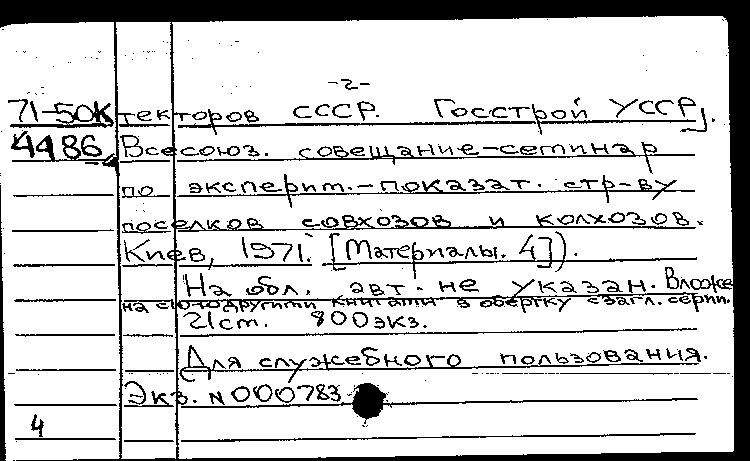 -2-
71-50К текторов СССР. Госстрой УССР].
4486 Всесоюз. совещание-семинар
по эксперим.-показат. стр-ву
поселков совхозов и колхозов.
Киев, 1971. [Материалы. 4]).
На обл. авт. не указан. Вложе
на с другими книгами в обертку с загл. серии.
21 см. 800 экз.
Для служебного пользования.
Экз. N 000783
4